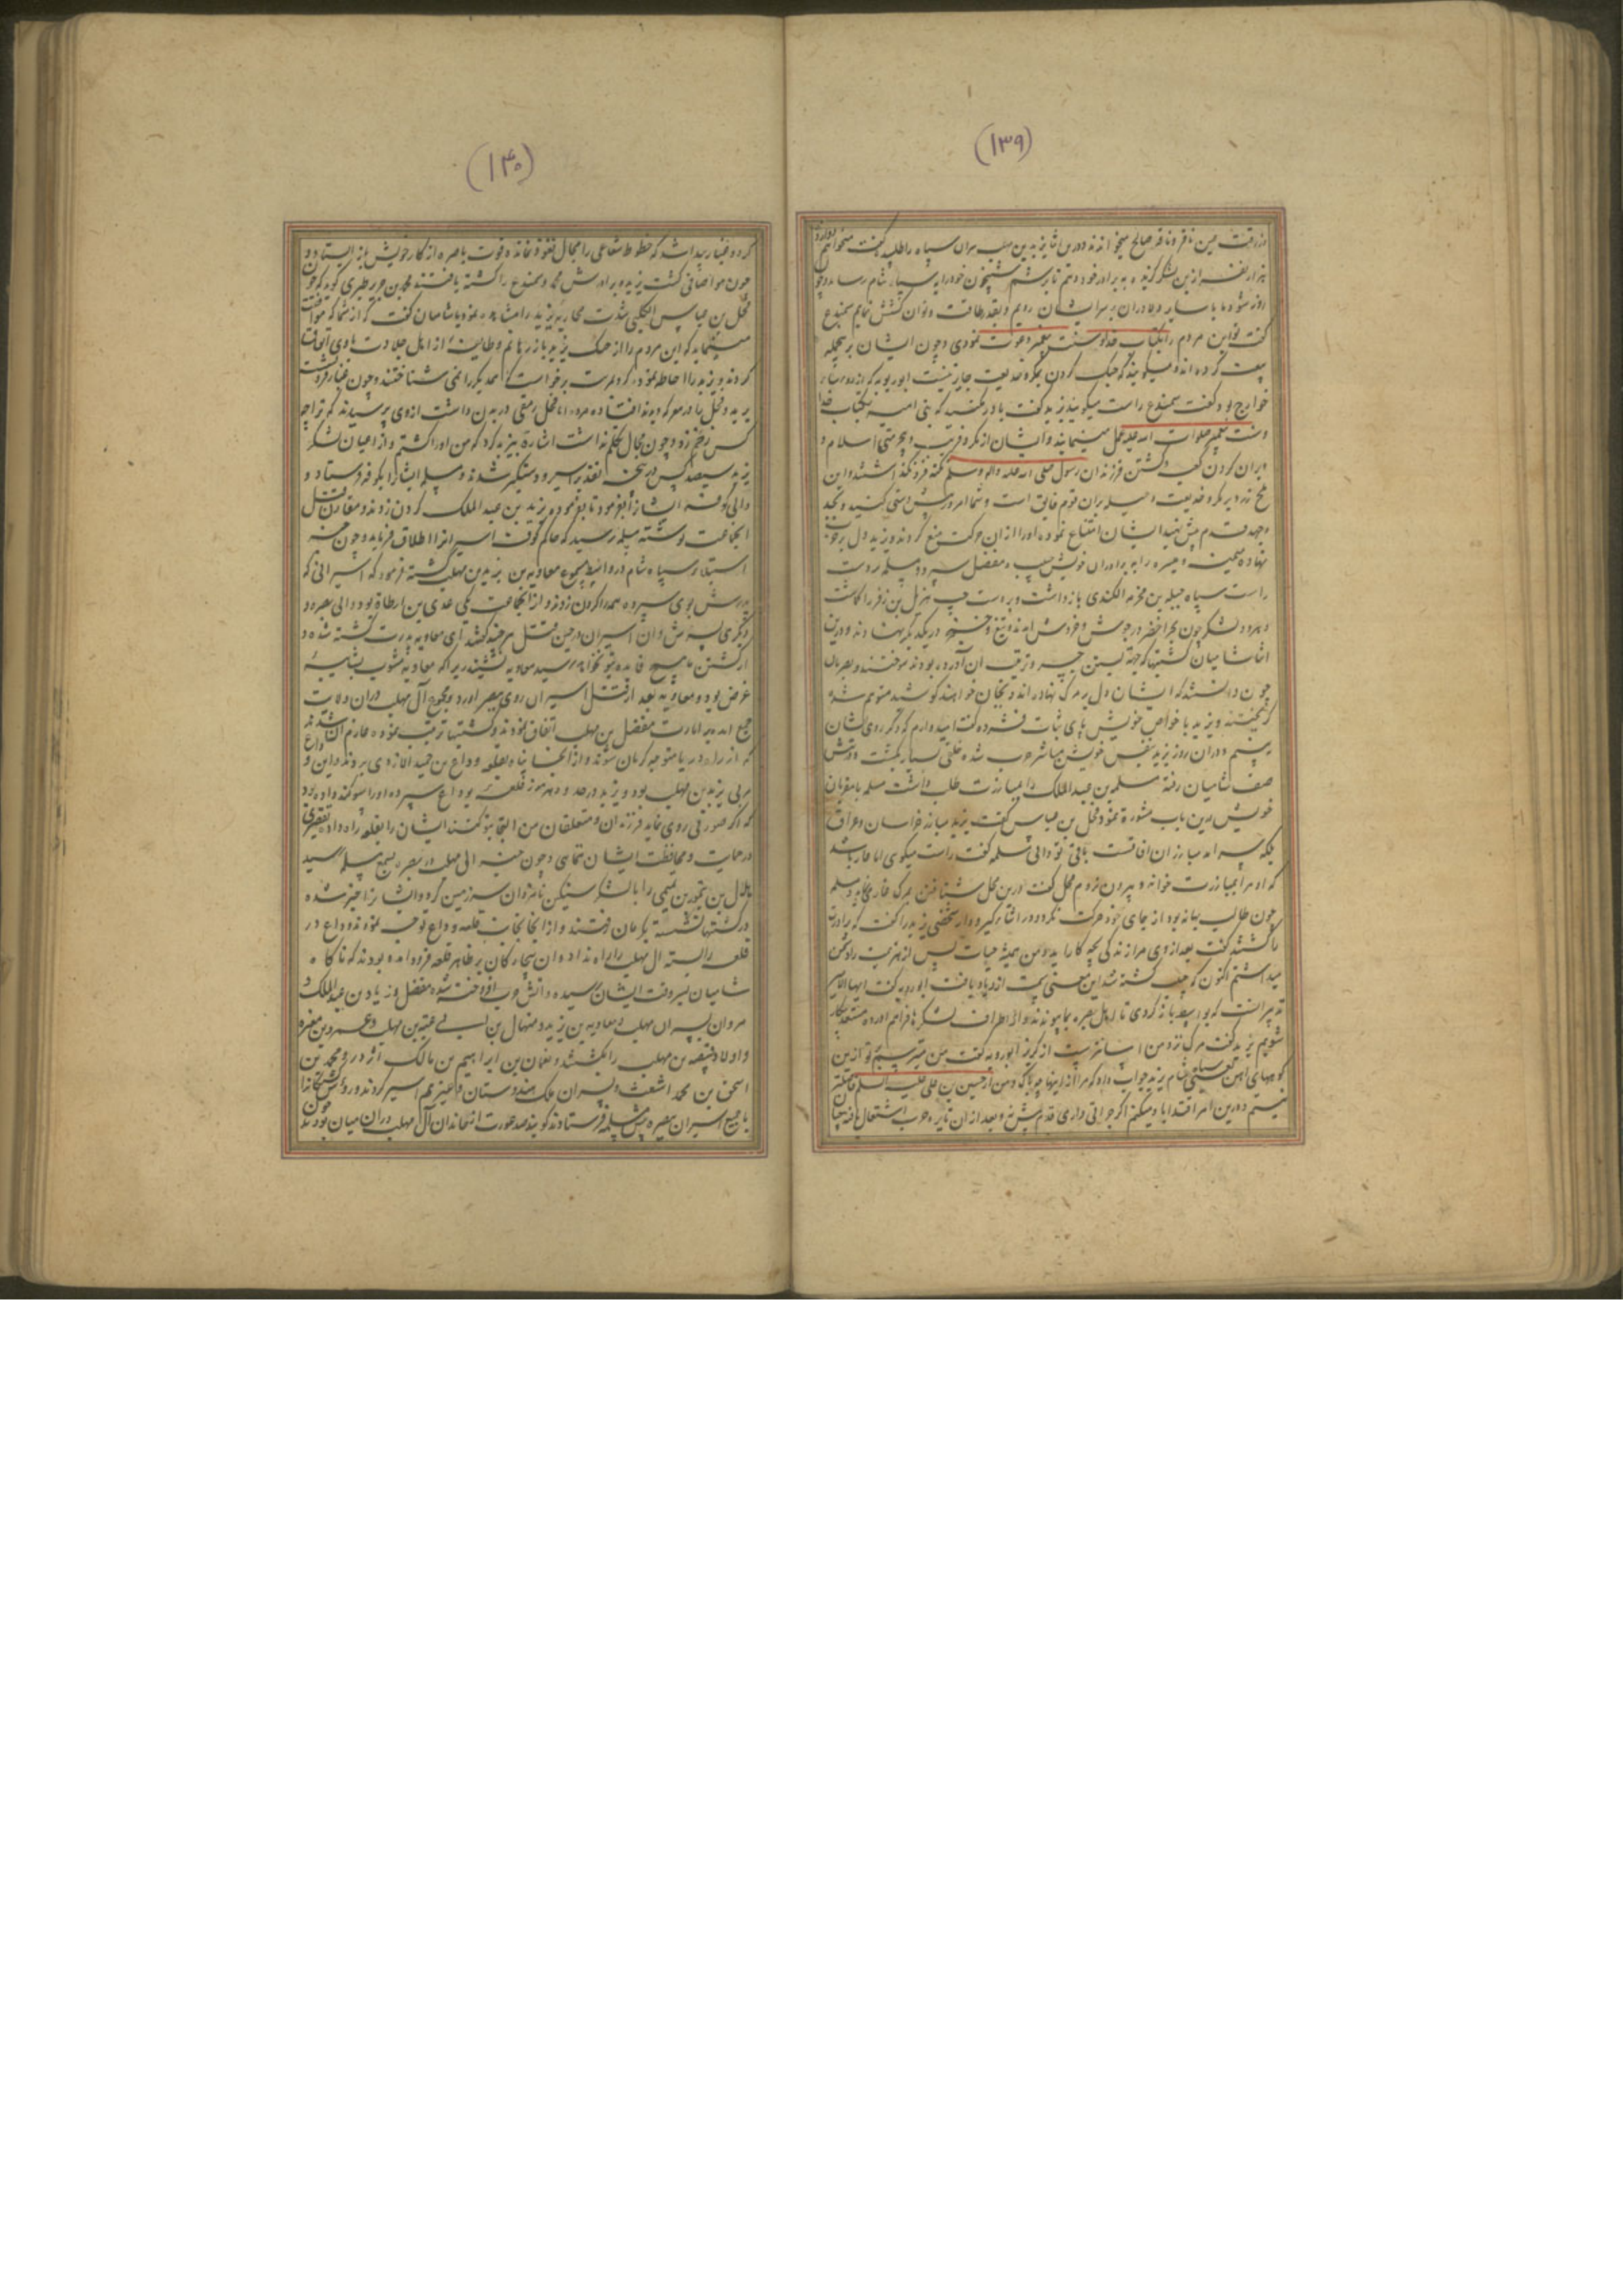 (۱۳۹)
صالح میخواندند و درین اثنا یزید بن مهلب سران سپاه را طلبیده گفت میخواهم
هزار نفر ازین لشکر گزیده به برادر خود دهم تا برسم شبیخون خود را به سپاه شام رساند و چون
روز شود ما با سایر دلاوران بر سر ایشان رویم و بقدر طاقت و توان کشش نمایم سمیدع
گفت تو این مردم را بکتاب خدا و سنت پیغمبر دعوت نمودی و چون ایشان برینجمله
بیعت کرده اند و میگویند که جنگ کردن بمکر و خدیعت جایز نیست ابو رویه که از
خوارج بود گفت سمیدع راست میگوید یزید گفت باور مکنید که بنی امیه بکتاب خدا
و سنت پیغمبر صلوات الله علیه عمل مینمایند و ایشان از مکر و فریب و بیحرمتی اسلام و
ویران کردن کعبه و کشتن فرزندان رسول صلی الله علیه و آله و سلم نکته فرو نگذاشتند و این
قدم پیش نهید ایشان امتناع نموده او را از آن حرکت منع کردند و یزید دل بر حرب
نهاده میمنه و میسره را به برادران خویش حبیب و مفضل سپرد و مسلمه بر دست
راست سپاه جبله بن مخرمه الکندی بازداشت و بر دست چپ هزیل بن زفر را گماشت
و هر دو لشکر چون بحر اخضر در جوش و خروش آمدند و تیغ و خنجر در یکدیگر نهادند و درین
اثنا شامیان کشتیها که جهة بستن جسر و ترتیب آن آورده بودند سوختند و بصریان
چون دانستند که ایشان دل بر مرگ نهاده اند و بجان خواهند کوشید منهزم شده
گریختند و یزید با خواص خویش پای ثبات فشرده گفت امیدوارم که دیگر روی ایشان
نبینم و در آن روز یزید بنفس خویش مباشر حرب شده خلقی بسیار بکشت و در پیش
صف شامیان رفته مسلمه بن عبد الملک را بمبارزت طلب داشت مسلمه با مقربان
خویش درین باب مشورة نمود فحل بن عیاس گفت یزید میانه خراسان و عراق
بلکه سرآمد مبارزان آفاقست باقی تو دانی مسلمه گفت راست میگوی اما عار باشد
که او مرا بمبارزت خواند و بیرون نروم فحل گفت درین محل شتافتن بمرگ عار نماند مسلمه
چون طالب بهانه بود از جای خود حرکت نکرد و در اثناء گیرودار شخصی یزید را گفت که برادرت
را کشتند گفت بعد از وی مرا زندگی بچه کار آید و من همیشه حیات پس از هزیمت را دشمن
میداشتم اکنون که حبیب کشته شد این معنی سمت ازدیاد یافت ابو رویه گفت ایها الامیر
تدبیر آنست که بواسط باز گردی تا اهل بصره بما پیوندند و از اطراف لشکرها فراهم آورده مستعد پیکار
شویم یزید گفت مرگ نزد من آسانتر است از گریز ابو رویه گفت من میترسم بر تو ازین
کوههای آهن یعنی سپاه شام یزید جواب داد که مرا از اینها چه باک و من از حسین بن علی علیه السلام فاضلتر
نیستم و درین امر اقتدا باو میکنم اگر جراتی داری قدم پیش نه و بعد از آن نایره حرب اشتعال یافته چنان
(۱۴۰)
گرد و غبار پیدا شد که خطوط شعاعی را مجال نفوذ نماند و قوت باصره از کار خویش باز ایستاد و
چون هوا صافی گشت یزید و برادرش محمد و سمیدع را کشته یافتند محمد بن جریر طبری گوید که چون
فحل بن عیاس الکلبی شدت محاربه یزید را مشاهده نمود با شامیان گفت که از شما که موافقت
مینماید که این مردم را از جنگ یزید باز رهانم و طایفهٔ از اهل جلادت با وی اتفاق
کردند و یزید را احاطه نمودند گرد برخواست تا همدیگر را نمی شناختند و چون غبار فرو نشست
یزید و فحل را در معرکه دیدند افتاده مرده اما فحل رمقی در بدن داشت از وی پرسیدند که ترا چه
کس زخم زد و چون مجال تکلم نداشت اشارة بیزید کرد که من او را کشتم و از اعیان لشکر
یزید سیصد کس در پنجه تقدیر اسیر و دستگیر شدند و مسلمه ایشانرا بکوفه فرستاد و
والی کوفه ایشانرا بفرموده یزید بن عبد الملک گردن زدند و مقارن قتل
آنجماعت نوشته مسلمه رسید که حاکم کوفه اسیرانرا اطلاق فرماید و چون خبر
استیلاء سپاه شام در واسط بسمع معاویه بن یزید بن مهلب گشته فرمود که اسیرانی که
پدرش بوی سپرده همه را گردن زدند و از آنجماعت یکی عدی بن ارطاة بود والی بصره و
دیگری پسرش و آن اسیران در حین قتل هر چند گفتند ای معاویه پدرت کشته شده و
از کشتن ما هیچ فایده بتو نخواهد رسید معاویه نشنید زیرا که معاویه مشوب بشایبهٔ
غرض بود و معاویه بعد از قتل اسیران روی ببصره آورد و مجموع آل مهلب در آن ولایت
جمع آمده بر امارت مفضل بن مهلب اتفاق نمودند و کشتیها ترتیب نموده عازم آن شدند
که از راه دریا متوجه کرمان شوند و از آنجا پناه بقلعه وداع بن حمید الازدی برند و این وداع
مربی یزید بن مهلب بود و یزید در حدود هرموز قلعهٔ بوداع سپرده او را سوگند داده بود
که اگر صورتی روی نماید فرزندان و متعلقان من التجا بتو کنند ایشان را بقلعه راه داده تقصیری
در حمایت و محافظت ایشان ننمای و چون خبر آل مهلب در بصره بسمع مسلمه رسید
هلال بن احوز بن تمیمی را با لشکر سنگین نامزد آن سرزمین گردانید
در کشتیها نشسته بکرمان رفتند و از آنجا بجانب قلعه وداع توجه نمودند وداع در
قلعه را بسته آل مهلب را راه نداد و آن بیچارگان بر ظاهر قلعه فرود آمده بودند که ناگاه
شامیان بسر وقت ایشان رسیده و آتش حرب افروخته شده مفضل و زیاد بن عبد الملک و
مروان پسران مهلب و معاویه بن یزید و منهال بن ابی عیینه بن مهلب و عمرو بن مغیره
و اولاد قبیصه بن مهلب را بکشتند و نعمان بن ابراهیم بن مالک اشتر و محمد بن
اسحق بن محمد اشعث و پسران ملک هندوستان و غیرهم اسیر کردند و رؤس کشتگانرا
با جمیع اسیران ببصره پیش مسلمه فرستادند گویند صد عورت از خاندان آل مهلب در آن میان بودند